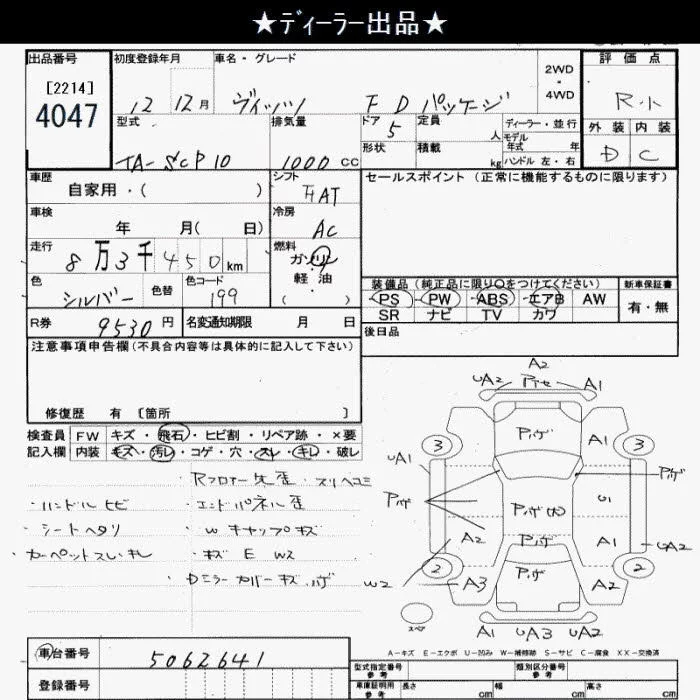 ★ﾃﾞｨｰﾗｰ出品★
出品番号 初度登録年月 車名・グレード 評価点
[2214]
4047
12 12月 ヴィッツ F Dパッケージ 2WD・4WD R.小
型式 排気量 ドア 定員 ディーラー・並行 外装 内装
TA-SCP10 1000cc 5 人 モデル年式 年 D C
形状 積載 kg ハンドル 左・右
車歴 シフト セールスポイント(正常に機能するものに限ります)
自家用・( ) FAT
車検 冷房
年 月( 日) AC
走行 燃料
8万3千450km ガソリン・軽油 ( )
色 色替 色コード 装備品(純正品に限り○をつけてください) 新車保証書
シルバー 199 PS PW ABS エアB AW 有・無
SR ナビ TV カワ
R券 9530円 名変通知期限 月 日 後日品
注意事項申告欄(不具合内容等は具体的に記入して下さい)
修復歴 有 〔箇所 〕
検査員 FW キズ・飛石・ヒビ割・リペア跡・×要
記入欄 内装 キズ・汚レ・コゲ・穴・スレ・キレ・破レ
Rフロアー先歪・スリヘコミ
・ハンドルヒビ ・エンドパネル歪
・シートヘタリ ・Wキャップキズ
・カーペットスレ・キレ ・キズ E WS
・Dミラーカバーキズ ハゲ
A2
UA2 A1
アハゲ
3 A1 3
UA1 アハゲ
アハゲ アハゲ U1
A2 アハゲ A1 UA2
2 アハゲ 2
W2 A3 A2
スペア
A1 UA3 UA2
A－キズ E－エクボ U－凹み W－補修跡 S－サビ C－腐食 XX－交換済
車台番号 5062641
登録番号
型式指定番号 参考 類別区分番号 参考
車庫証明用 参考 長さ cm 幅 cm 高さ cm